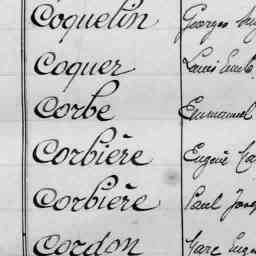 Coquelin Georges
Coquer Louis Emile
Corbe Emmanuel
Corbière Eugène
Corbière Paul Jose
Cordon Marc Euge